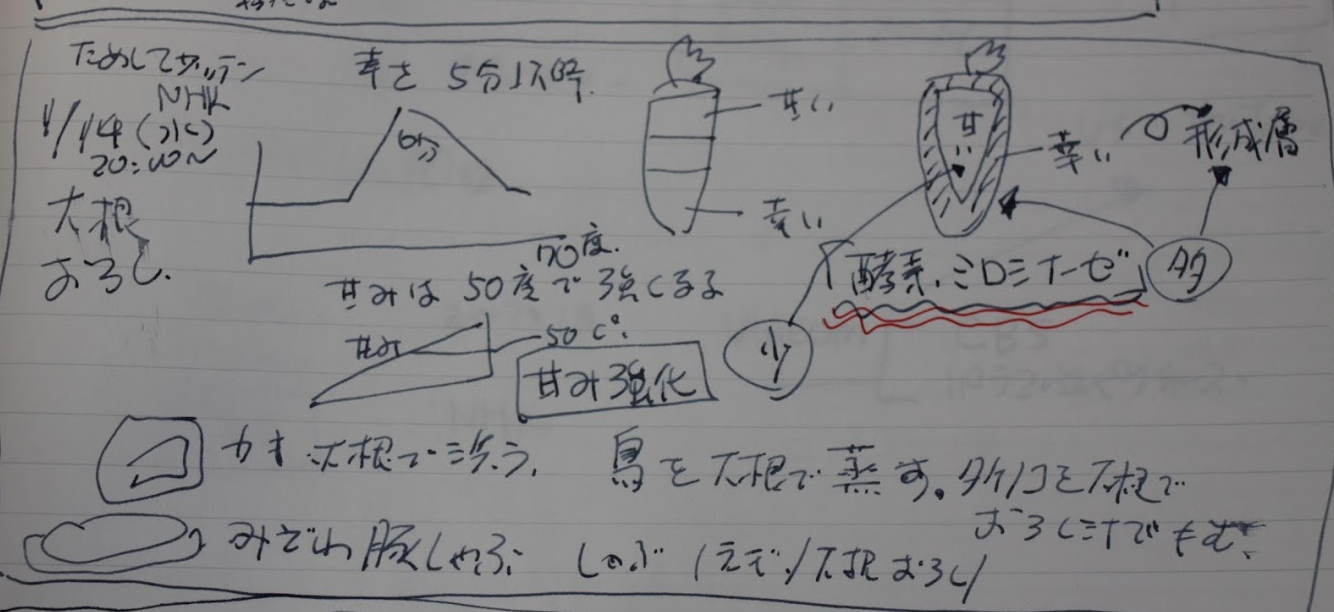 ためしてガッテン
NHK
1/14(水)
20:00~
大根
おろし.
辛さ 5分以降.
6分
甘い
辛い
甘い
辛い
形成層
酵素、ミロミナーゼ
多
少
70度.
甘みは 50度で強くなる
甘み
50C°.
甘み強化
カキ 大根で洗う. 鳥を大根で蒸す。タケノコを大根で
おろし汁でもむ
みぞれ豚しゃぶ しゃぶ 大根おろし